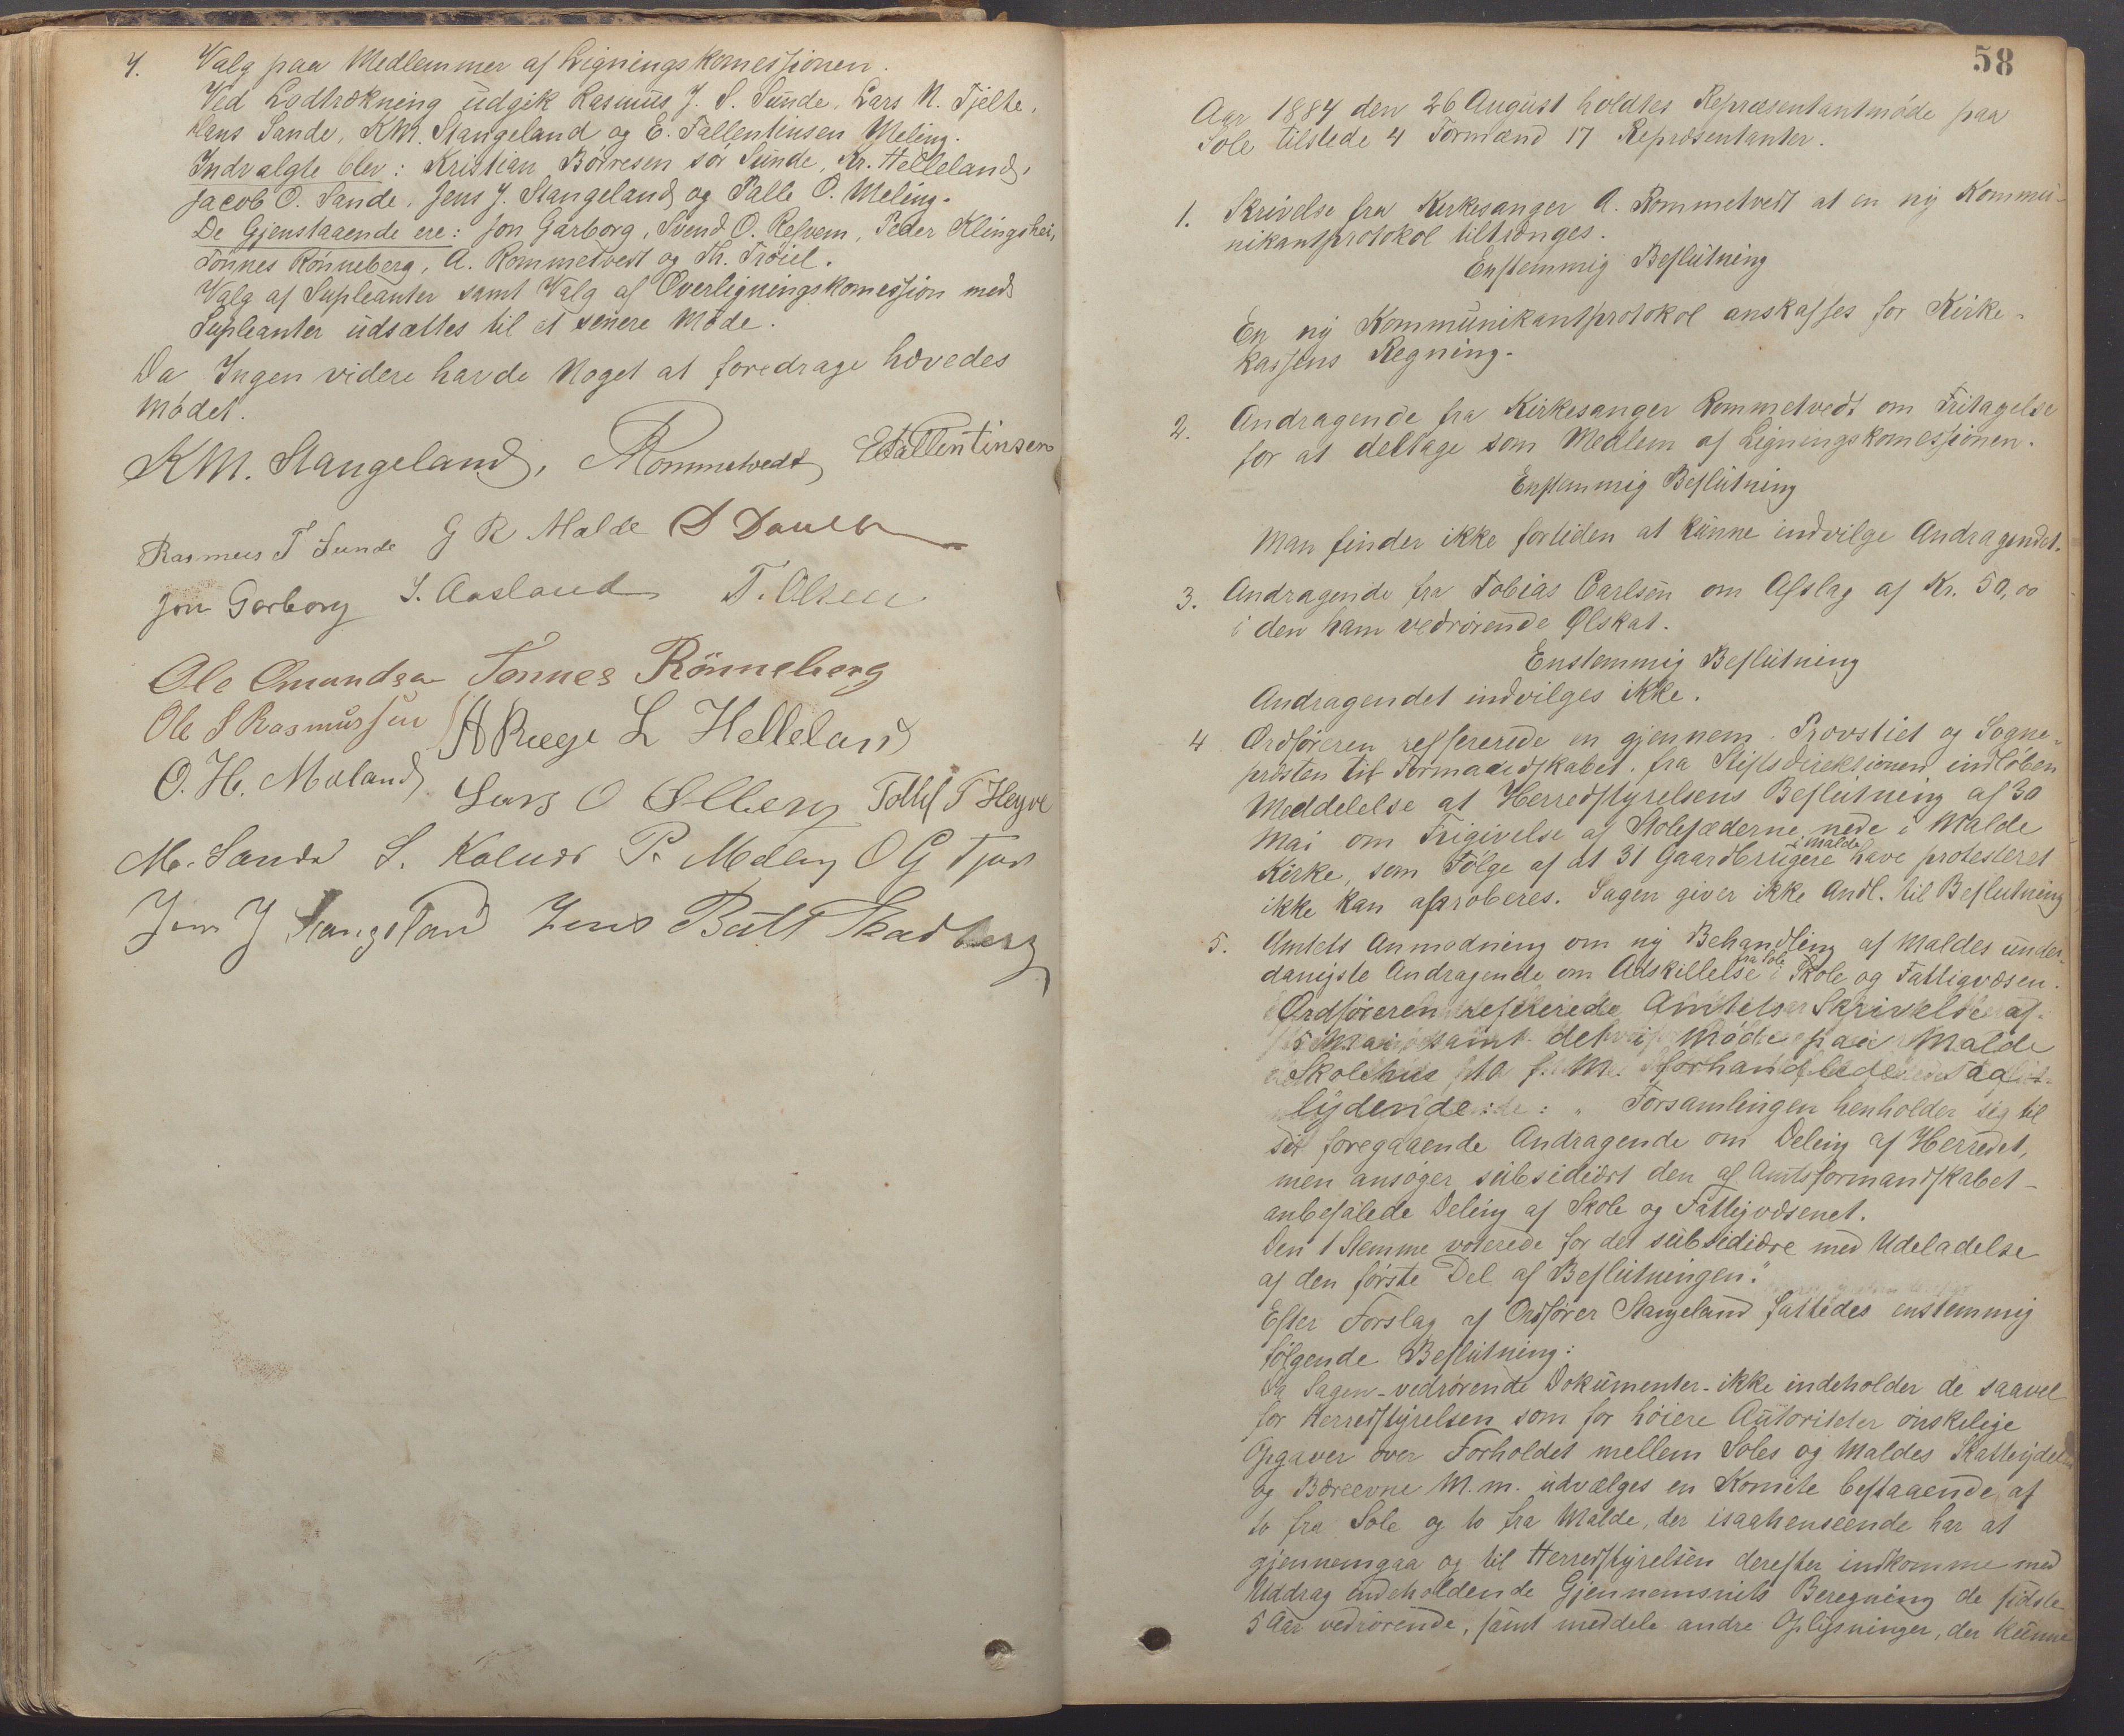 4. Valg paa Medlemmer af Ligningskomessionen.
Ved Lodtrækning udgik Rasmus J. S. Sunde, Lars N. Tjelte,
Hans Sande, KM. Stangeland og E. Tallentinsen Meling.
Indvalgte blev: Kristian Börresen sör Sunde, Kr. Helleland,
Jacob O. Sande, Jens J. Stangeland og Palle O. Meling.
De Gjenstaaende ere: Jon Garborg, Svend O. Refvem, Peder Klingshei,
Tönnes Rönneberg, A. Rommetvedt og Th. Tröiel.
Valg af Supleanter samt Valg af Overligningskomession med
Supleanter udsættes til et senere Möde.
Da Ingen videre havde Noget at foredrage hævedes
Mödet.
KM. Stangeland, Rommetvedt ETallentinsen
Rasmus T Sunde G R Malde
Jon Garborg S. Aasland T. Olsen
Ole Omundsen Tonnes Rönneberg
Ole S Rasmussen A Reege L Helleland
O. H. Meland Lars O Ølberg Tollef T Heyve
M. Sande S. Kolnes P. Meling O G Tjora
Jens J Stangeland Jens Bull Stadberg
58
Aar 1884 den 26 August holdtes Repræsentantmöde paa
Sole tilstede 4 Formænd 17 Repræsentanter.
1. Skrivelse fra Kirkesanger A. Rommetvedt at en ny Kommu-
nikantprotokol tiltrænges.
Enstemmig Beslutning
En ny Kommunikantprotokol anskaffes for Kirke-
kassens Regning.
2. Andragende fra Kirkesanger Rommetvedt om Fritagelse
for at deltage som Medlem af Ligningskomessionen.
Enstemmig Beslutning
Man finder ikke fortiden at kunne indvilge Andragendet.
3. Andragende fra Tobias Carlsen om Afslag af Kr. 50,00
i den ham vedrörende Ølskat.
Enstemmig Beslutning
Andragendet indvilges ikke.
4 Ordföreren refererede en gjennem Provstiet og Sogne-
præsten til Formandskabet fra Stiftsdireksionen indlöben
Meddelelse at Herredstyrelsens Beslutning af 30
Mai om Frigivelse af Stolesæderne nede i Malde
Kirke, som Fölge af at 31 Gaardbrugere i Malde have protesteret
ikke kan approberes. Sagen giver ikke Anl. til Beslutning
5. Amtets Anmodning om ny Behandling af Maldes under-
danigste Andragende om Adskillelse fra Sole i Skole og Fattigvæsen.
Ordföreren refererede Amtets Skrivelse af
5 Mai samt det i Möde paa Malde
Skolehus 10 f. M. forhandlede saa-
lydende: " Forsamlingen henholder sig til
sit foregaaende Andragende om Deling af Herredet,
men ansöger subsidiært den af Amtsformandskabet
anbefalede Deling af Skole og Fattigvæsenet.
Den 1 Stemme voterede for det subsidiære med Udeladelse
af den förste Del af Beslutningen."
Efter Forslag af Ordförer Stangeland fattedes enstemmig
fölgende Beslutning:
Da Sagen vedrörende Dokumenter ikke indeholder de saavel
for Herredstyrelsen som for höiere Autoriteter önskelige
Opgaver over Forholdet mellem Soles og Maldes Skatteydelse
og Bæreevne M. m. udvælges en Komite bestaaende af
to fra Sole og to fra Malde, der isaahenseende har at
gjennemgaa og til Herredstyrelsen derefter indkomme med
Uddrag indeholdende Gjennemsnits Beregning de sidste
5 Aar vedrörende, samt meddele andre Oplysninger, der kunne